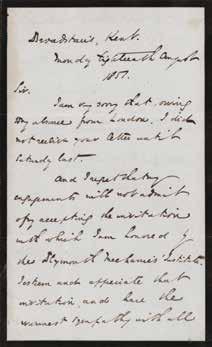 Broadstairs, Kent.
Monday Eighteenth August
1851.
Sir.
I am very sorry that, owing
my absence from London, I did
not receive your letter until
Saturday last.
And I regret that my
engagements will not admit
of my accepting the invitation
with which I am honored by
the Plymouth Mechanics' Institute.
I esteem and appreciate that
invitation, and have the
warmest sympathy with all